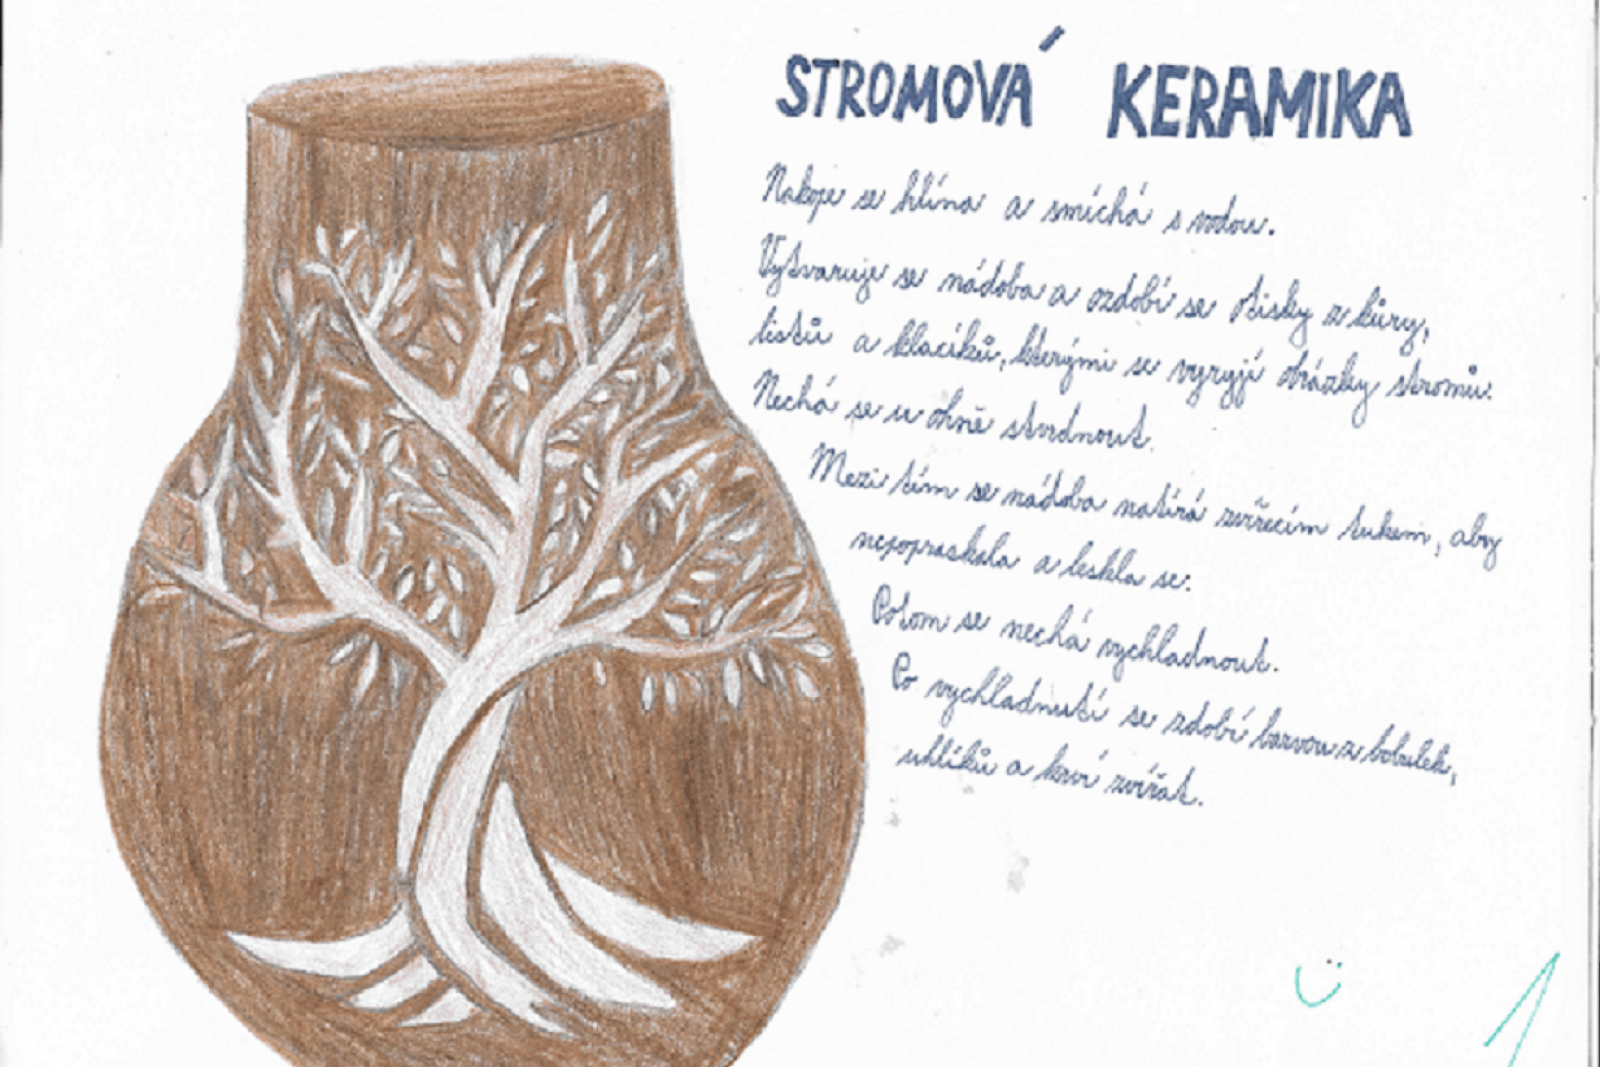 STROMOVÁ KERAMIKA
Nakope se hlína a smíchá s vodou.
Vytvaruje se nádoba a ozdobí se otisky z kůry,
listů a klacíků, kterými se vyryjí obrázky stromů.
Nechá se u ohně stvrdnout.
Mezi tím se nádoba natírá zvířecím tukem, aby
nepopraskala a leskla se.
Potom se nechá vychladnout.
Po vychladnutí se zdobí barvou z bobulek,
uhlíků a krví zvířat.
1